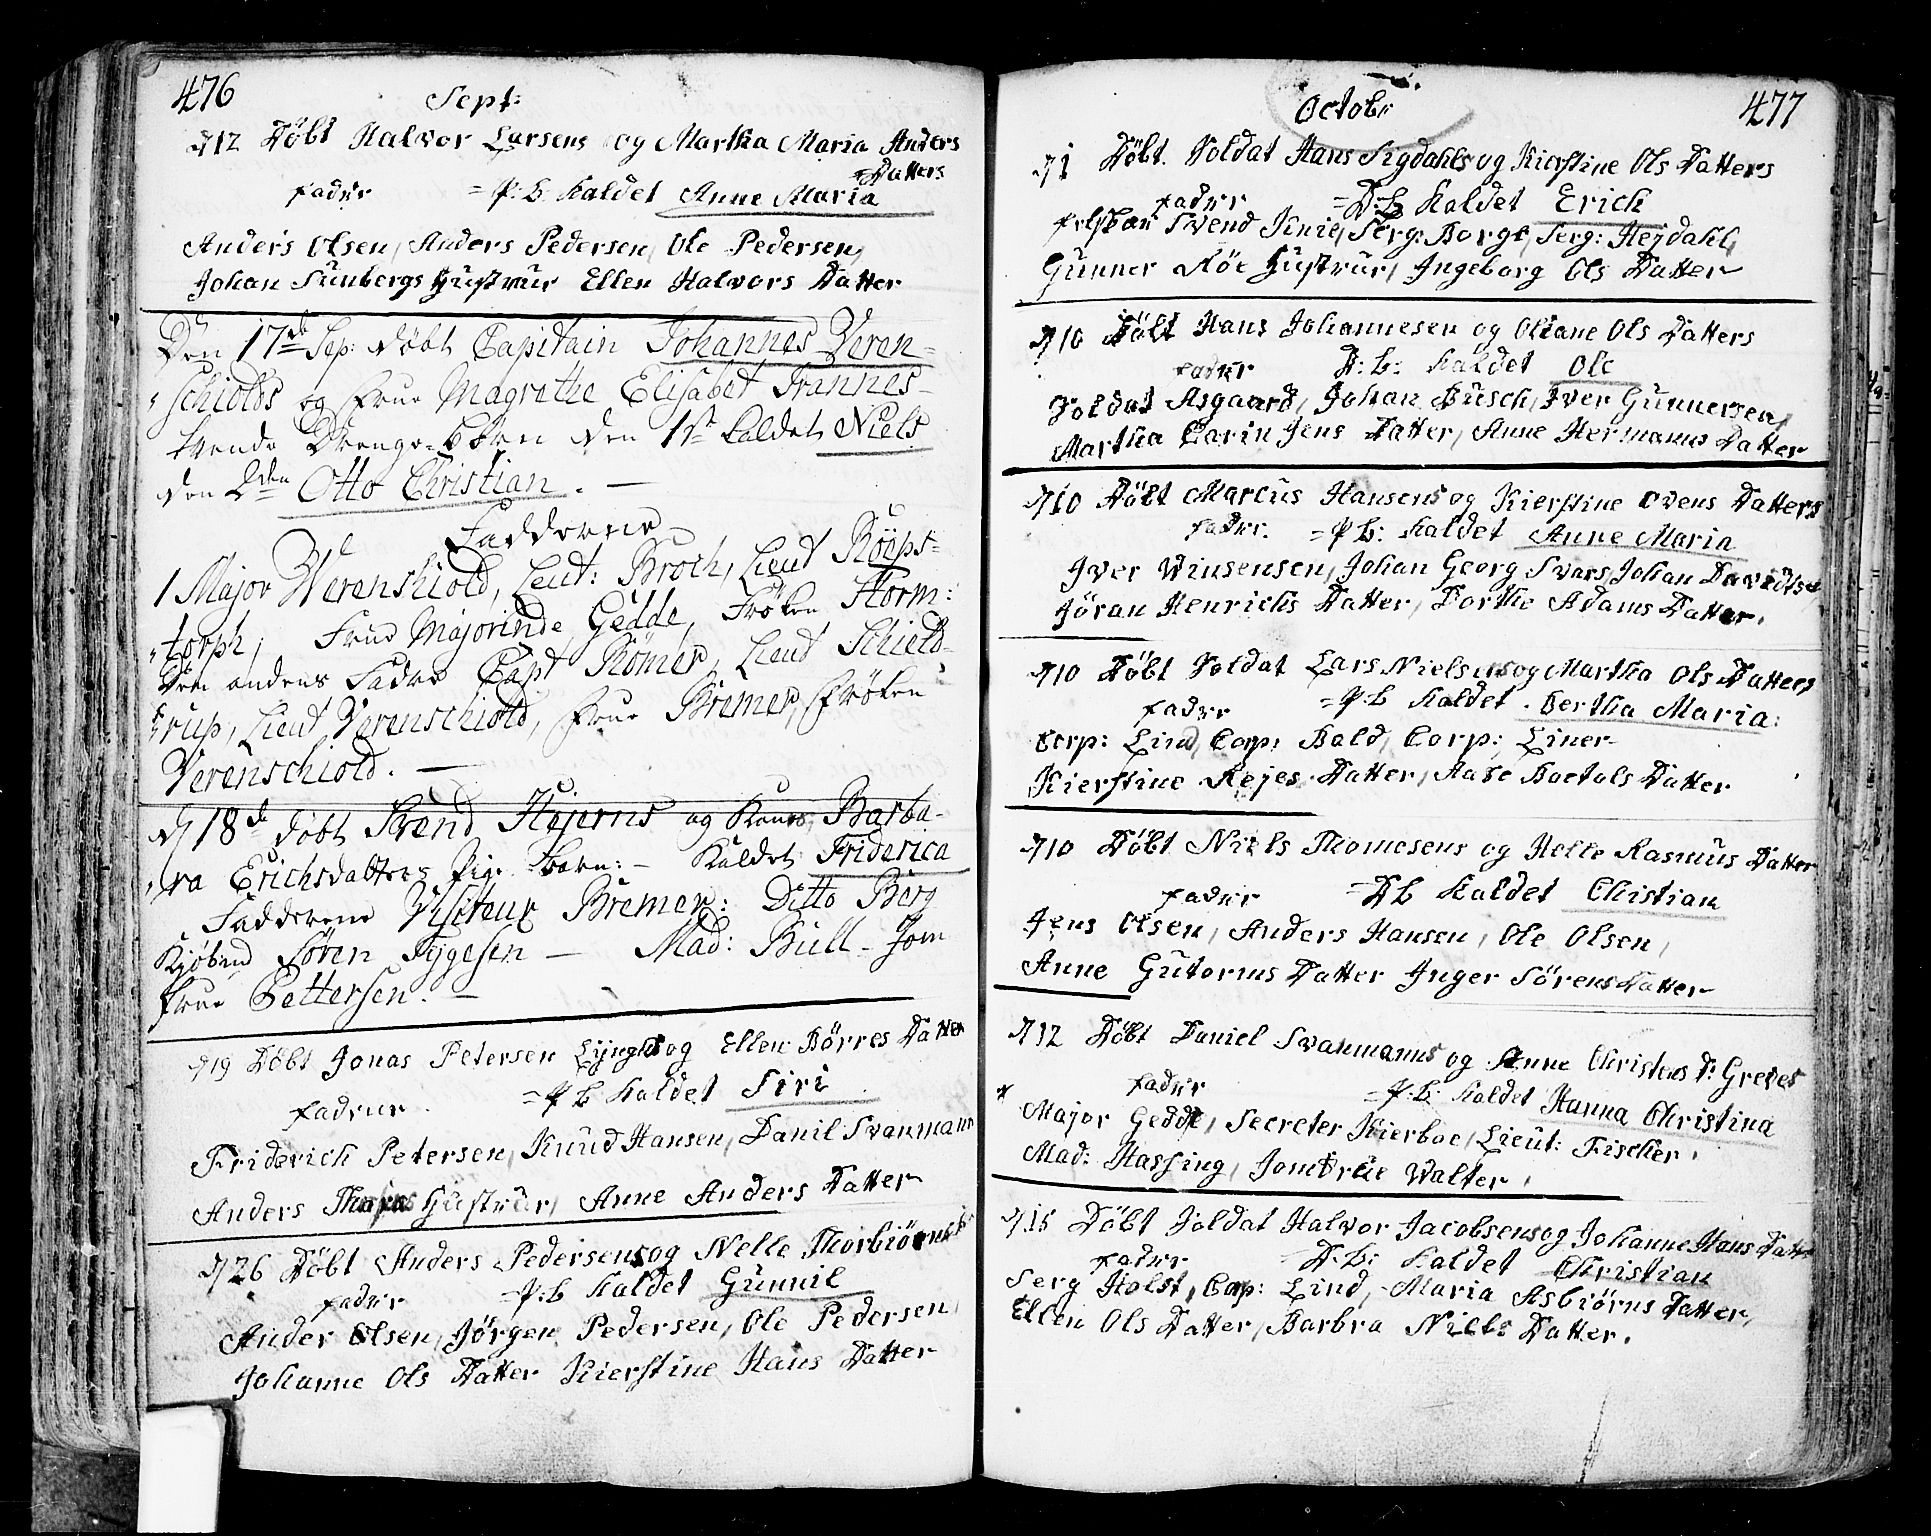 476
Sept:
d 12 Döbt Halvor Larsens og Martha Maria Anders
Datters
Fadr = P: B. kaldet Anne Maria
Anders Olsen, Anders Pedersen, Ole Pedersen,
Johan Sunbergs Hustrue Ellen Halvors Datter
Den 17de Sep: döbt Capitain Johannes Veren-
schiolds og Frue Magrethe Elisabet Frannes
tvende Drenge-Börn den 1st kaldet Niels
den 2den Otto Christian. —
Fadderne
1 Major Werenskiold, Leut: Broch, Lieut Röeps-
torph, Frue Majorinde Gedde, Fröken Storm:
Den andens Fadre Capt Römer, Lieut Schield-
rup, Lieut Verenschiold, Frue Bremer, Fröken
Verenschiold. —
d 18de döbt Svend Hejerns og Kones Barba-
ra Erichsdatters Pige Barn: — Kaldet Friderica
Fadderne Visiteur Bremer: Ditto Berg
Kjöbmd Sören Tygesen — Mad: Bull - Jom
frue Pettersen. —
d 19 Döbt Jonas Petersen Lyngs og Ellen Börres Datter
= P B kaldet Siri
Fadrur
Friderich Petersen, Knud Hansen, Danil Svanmann
Anders Hustrur, Anne Anders Datter
d 26 Döbt Anders Pedersens og Nelle Thorbiörns
Fadr = P: B kaldet Gunnil
Ander Olsen, Jörgen Pedersen, Ole Pedersen,
Johanne Ols Datter Kierstine Hans Datter
477
Octobr
d 1 Döbt. Soldat Hans Sigdahls og Kierstine Ols Datters
Fadr = D: B kaldet Erich
Svend Knie, Serg: Borge, Serg: Hejdahl,
Gunner Röe Hustrur, Ingeborg Ols Datter
d 10 Döbt Hans Johannesen og Oliane Ols Datters
Fadr D: B: kaldet Ole
Soldat Asgaard, Johan Busch, Iver Gunnersen,
Martha Carin Jens Datter, Anne Hermans Datter
d 10 Döbt Marcus Hansens og Kierstine Ovens Datters
Fadr. = P B: kaldet Anne Maria
Iver Vinsensen, Johan Georg Svars, Johan Davidtsen,
Jöran Henrichs Datter, Dorthe Adams Datter.
d 10 Döbt Soldat Lars Nielsens og Martha Ols Datters
Fadr = P: B kaldet . Bertha Maria:
Corp: Lind, Corp: Bald, Corp: Liner
Kierstine Rejes Datter, Aase Boetols Datter
d 10 Döbt Niels Thomesens og Helle Rasmus Datter
Fadr = D B kaldet Christian
Jens Olsen, Anders Hansen, Ole Olsen,
Anne Gutorms Datter Inger Sörens Datter
d 12 Döbt Daniel Svanmanns og Anne Christens D: Greves
Fadr = P: B: kaldet Hanna Christina
Major Gedde, Secreter Kierboe, Lieut: Fischer,
Mad: Hassing, Jomfrue Walter,
d 15 Döbt Soldat Halvor Jacobsens og Johanne Hans Datter
Fadr D: B: kaldet Christian
Serg Holst, Corp: Lind, Maria Asbiörns Datter,
Ellen Ols Datter, Barbra Niels Datter.